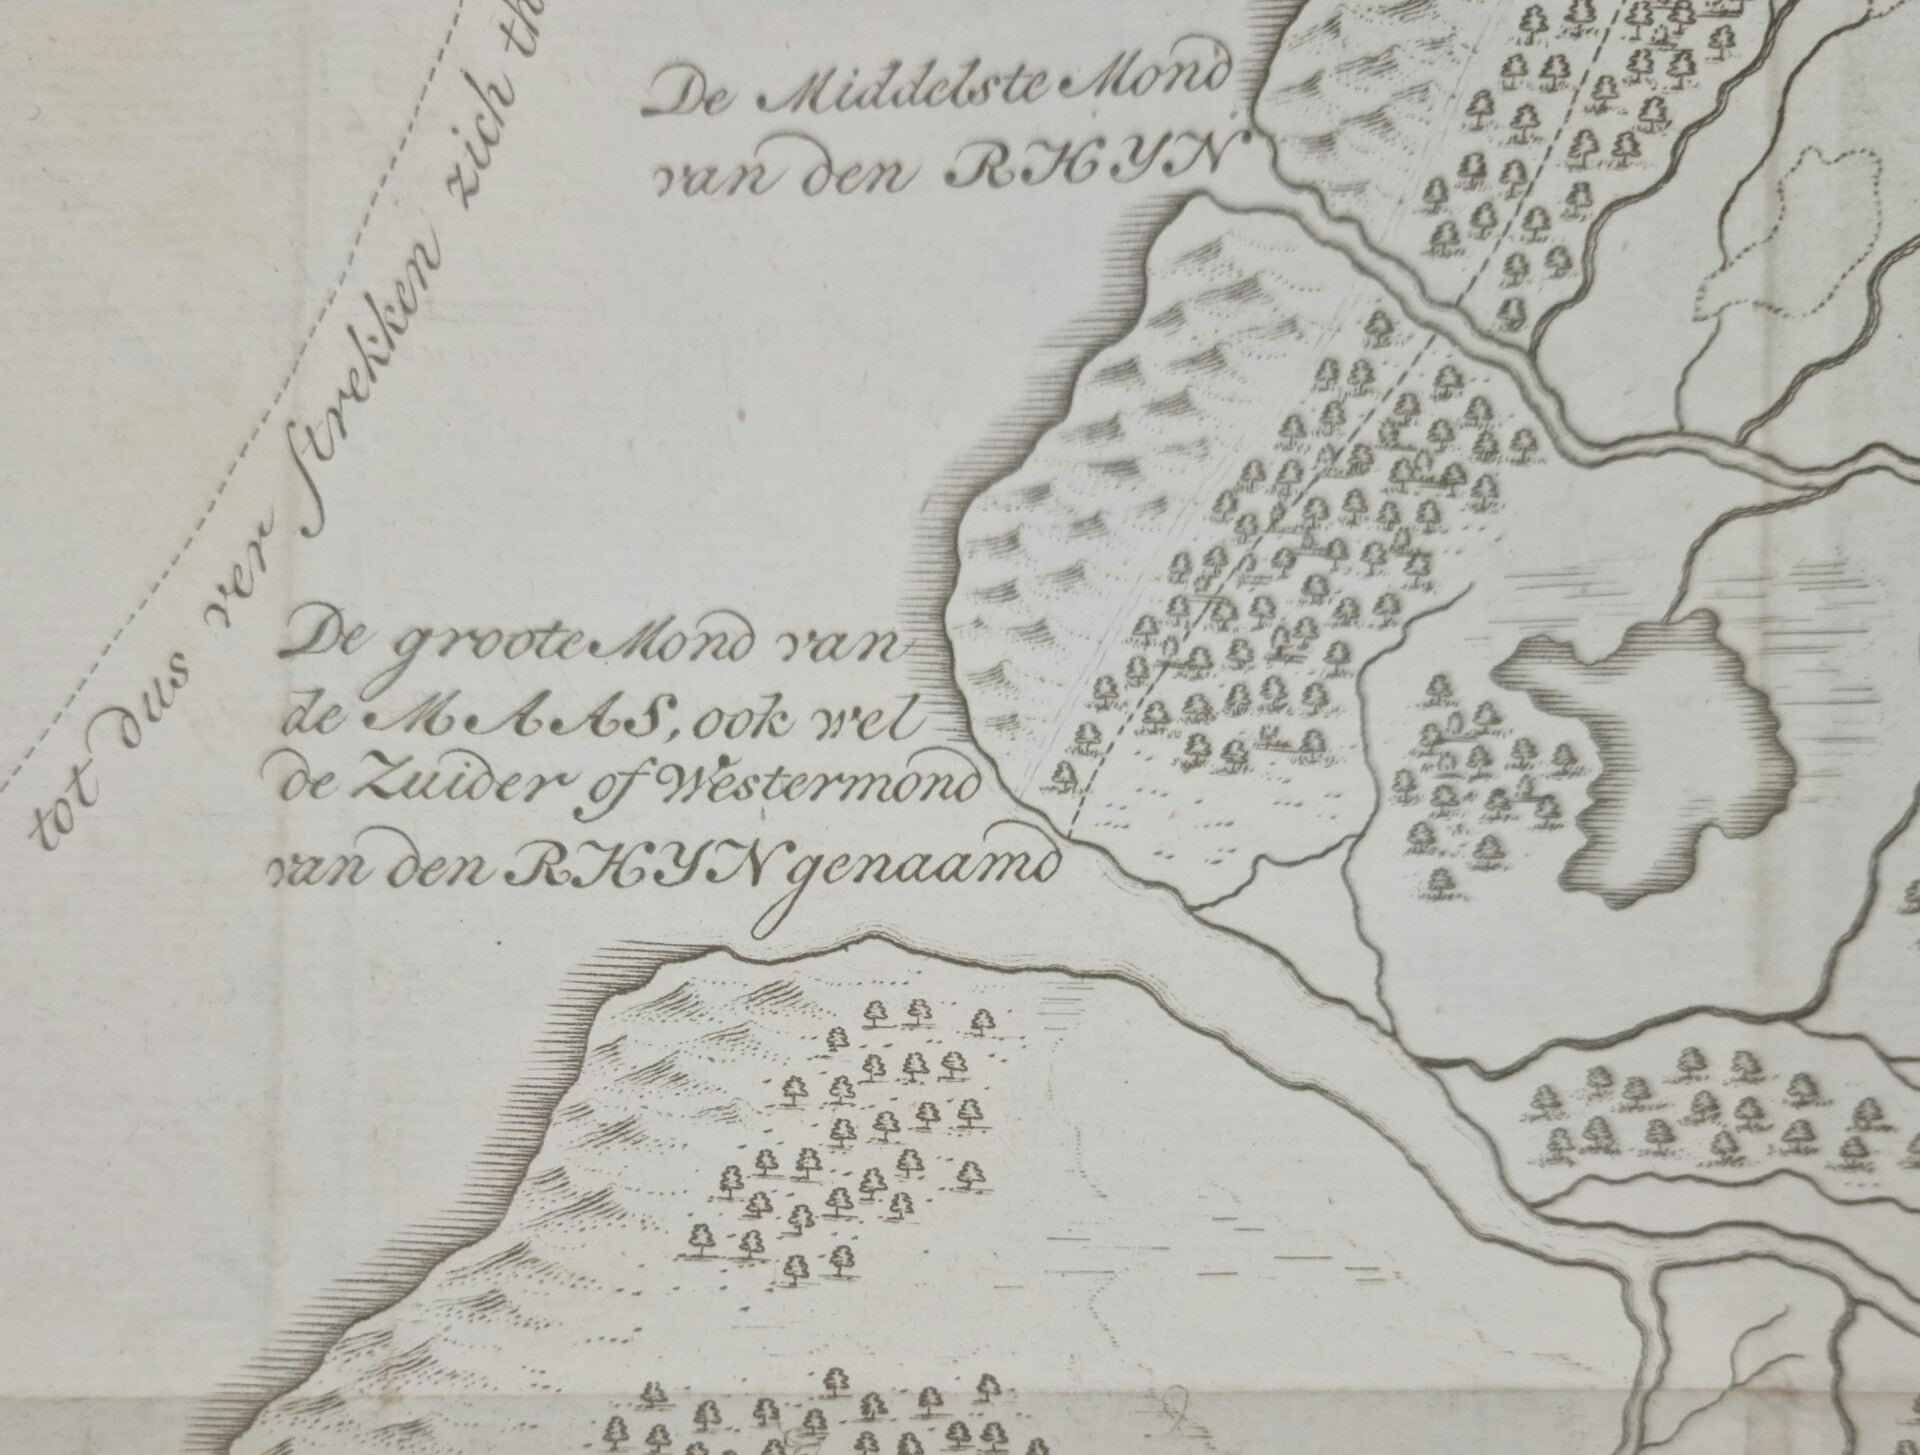 De Middelste Mond
van den RHYN
tot dus ver strekken zich
De groote Mond van
de MAAS, ook wel
de Zuider of Westermond
van den RHYN genaamd